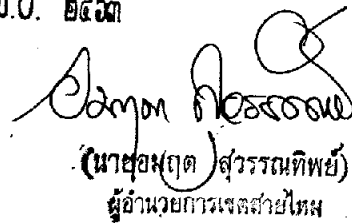 พ.ศ. ๒๕๖๓
(นายอมฤต สุวรรณทิพย์)
ผู้อำนวยการเขตสายไหม